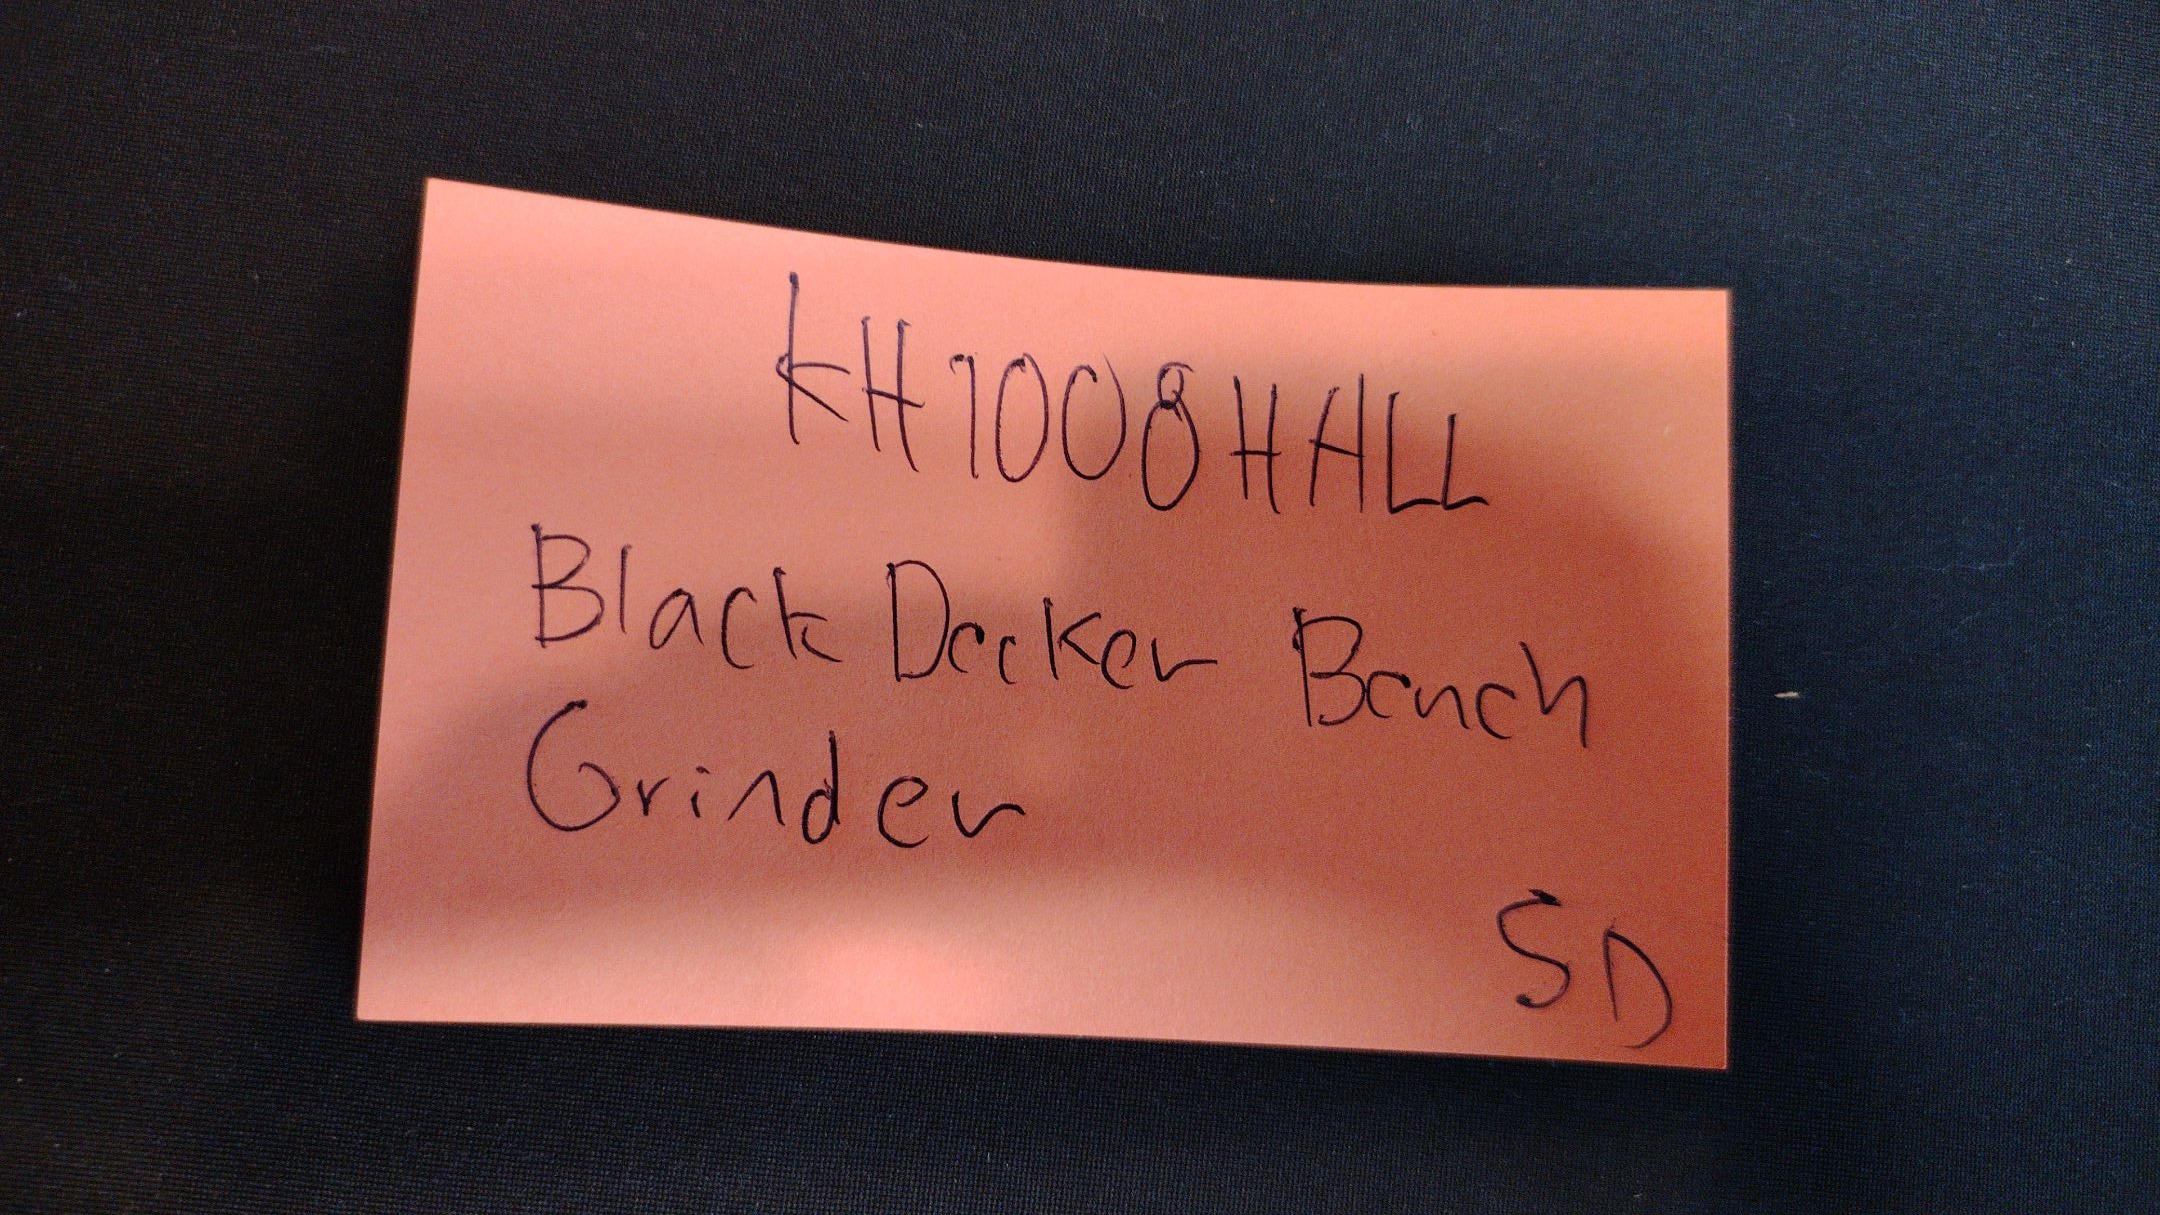 KH1008HALL
Black Decker Bench
Grinder
SD